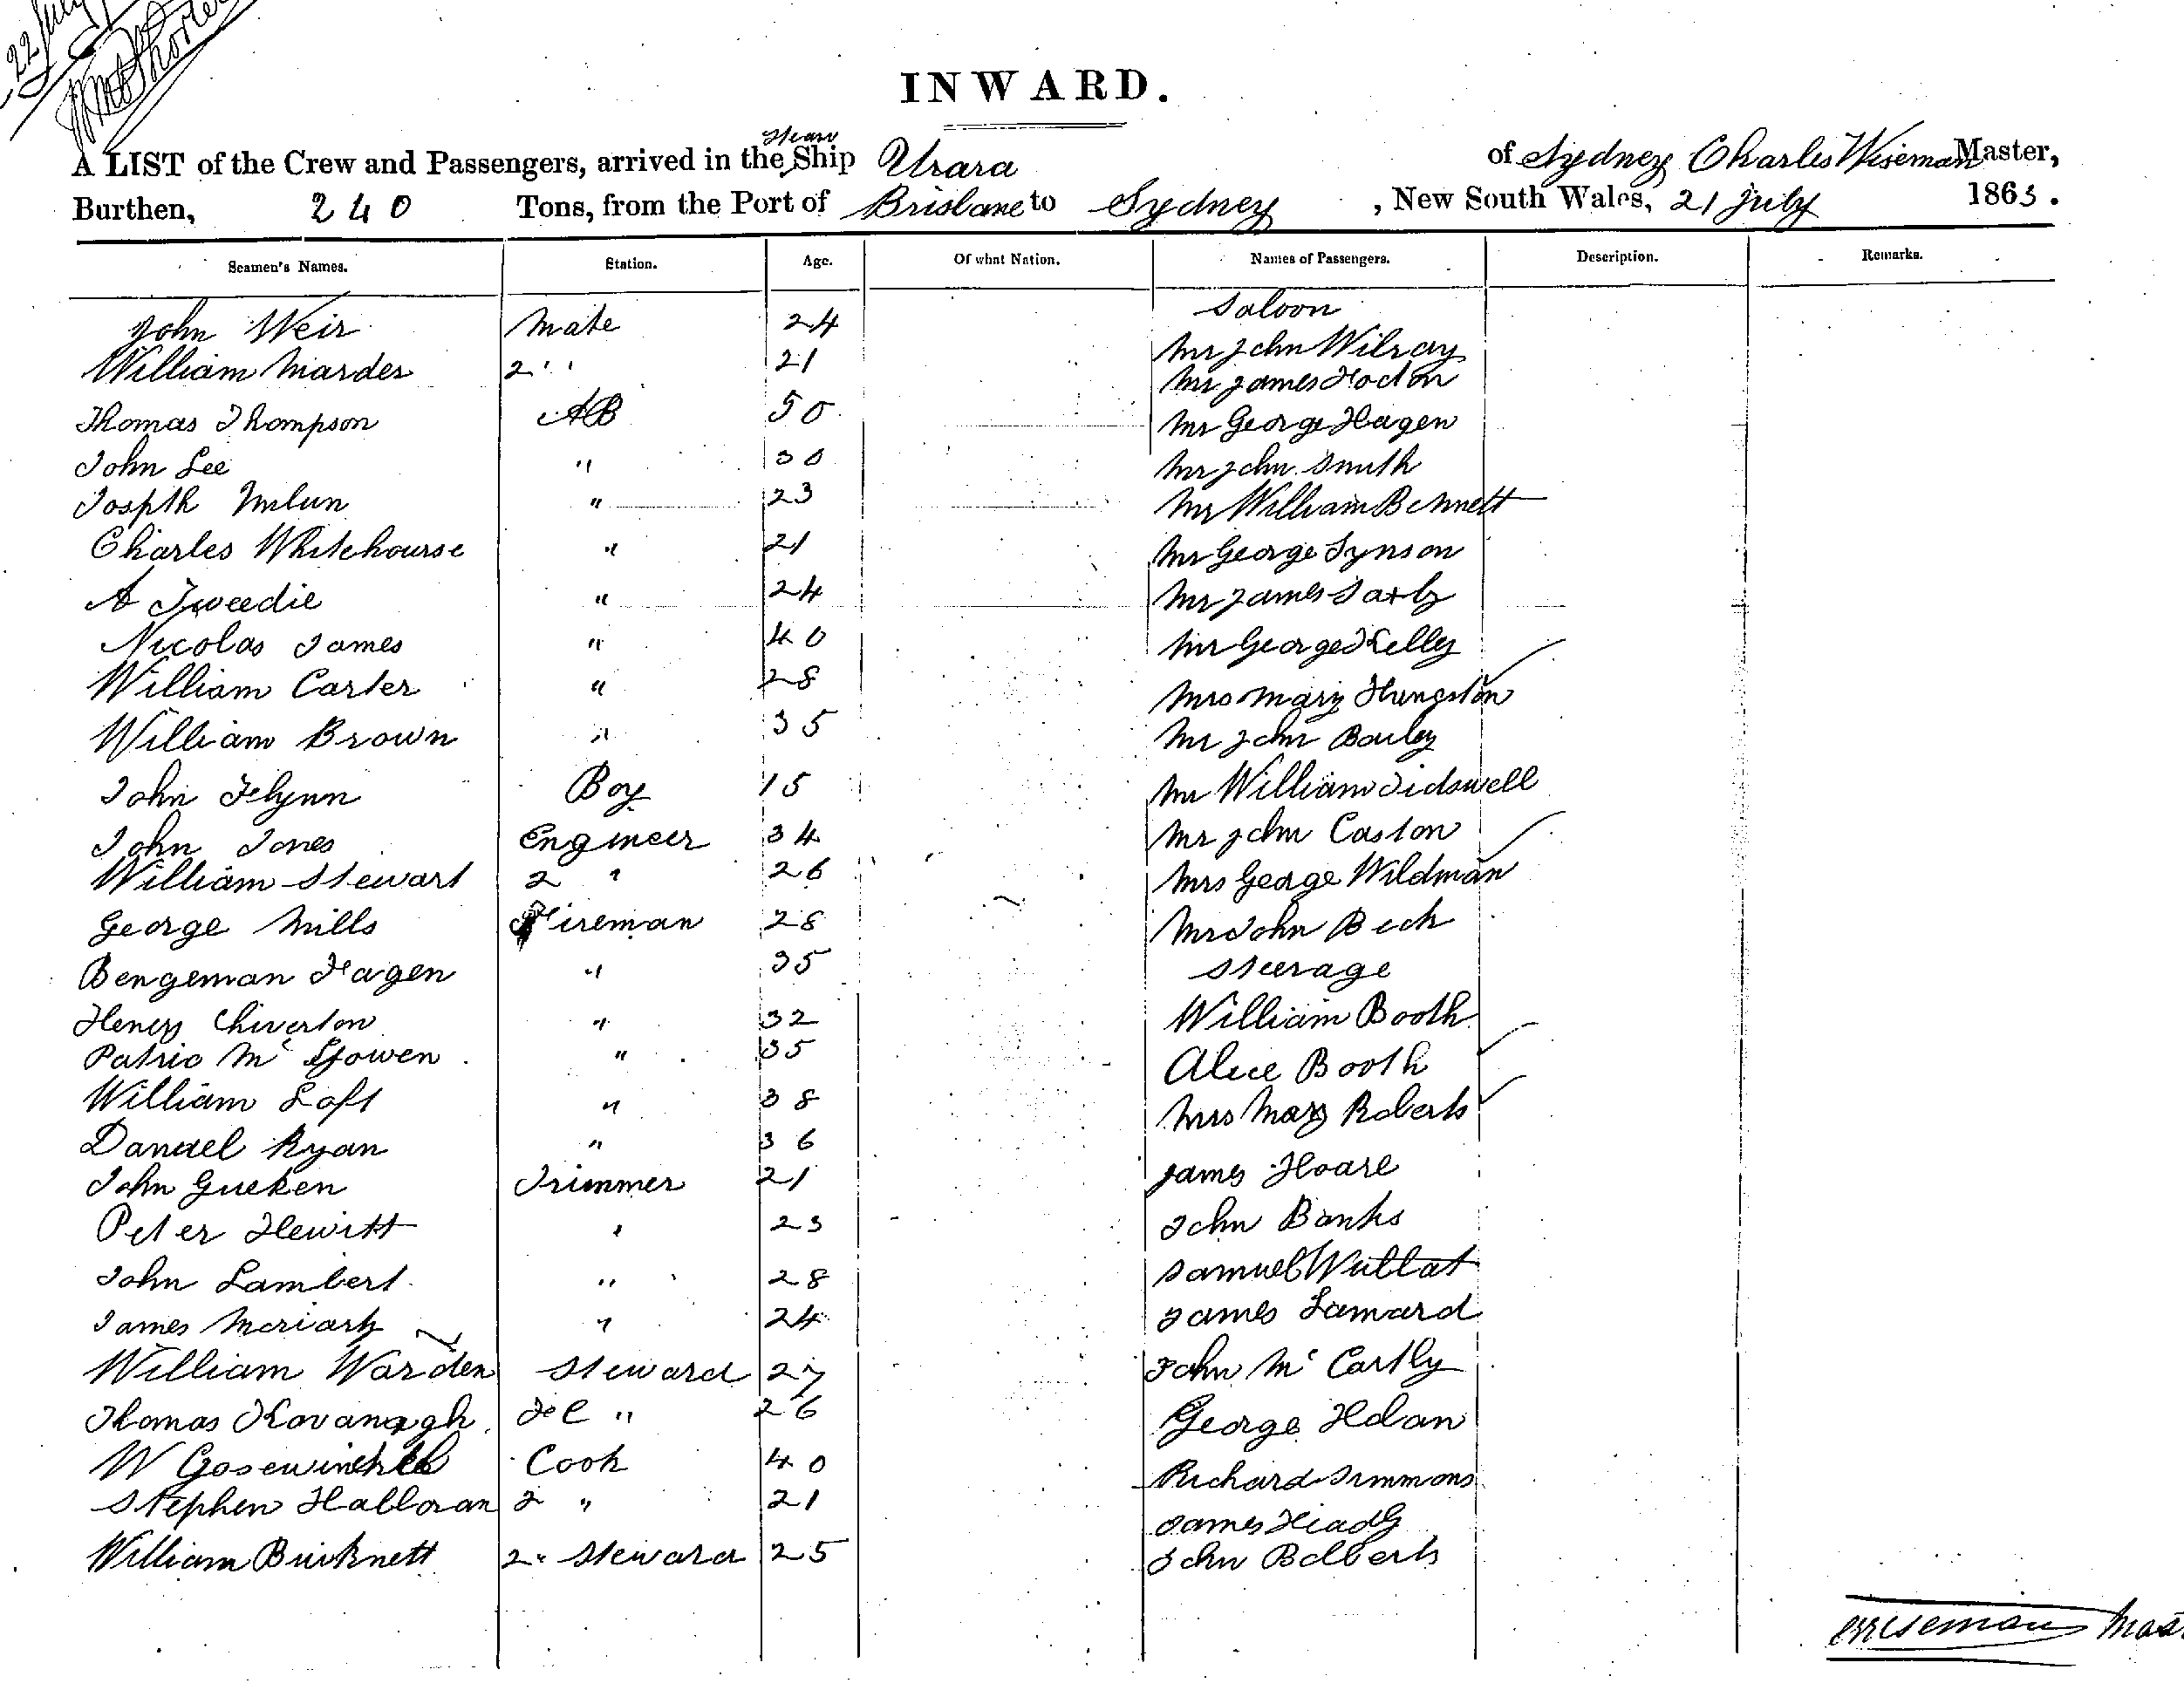 22 July
INWARD.
A LIST of the Crew and Passengers, arrived in the Steam Ship Urara of Sydney Charles Wiseman Master,
Burthen, 240 Tons, from the Port of Brisbane to Sydney, New South Wales, 21 July 1863.
Seamen's Names. Station. Age. Of what Nation. Names of Passengers. Description. Remarks.
Saloon
John Weir Mate 24
Mr John Wilray
William Marder 2 " 21
Mr James Hocton
Thomas Thompson AB 50
Mr George Hagen
John Lee " 30
Mr John Smith
Jospth Milun " 23
Mr William Bennett
Charles Whitehourse " 21
Mr George Synson
A Tweedie " 24
Mr James Saxby
Nicolas James " 40
Mr George Kelly
William Carter " 28
Mrs Mary Hungston
William Brown " 35
Mr John Bailey
John Flynn Boy 15
Mr William Tidswell
John Jones Engineer 34
Mr John Caston
William Stewart 2 " 26
Mrs George Wildman
George Mills Fireman 28
Mr John Beck
Bengeman Hagen " 35
Steerage
Henry Chiverton " 32
William Booth
Patric Mc Gowen " 35
Alice Booth
William Loft " 38
Mrs Mary Roberts
Danael Ryan " 36
John Gueken Trimmer 21
James Hoare
Peter Hewitt " 23
John Banks
John Lambert " 28
Samuel Wullat
James Moriarty " 24
James Lamard
William Warden Steward 27
John Mc Cartly
Thomas Kavanagh " 26
George Holan
W Cook 40
Richard Simmons
Stephen Halloran 2 " 21
James Heady
William Birknett 2 " Steward 25
John Rolberts
CWiseman Mas